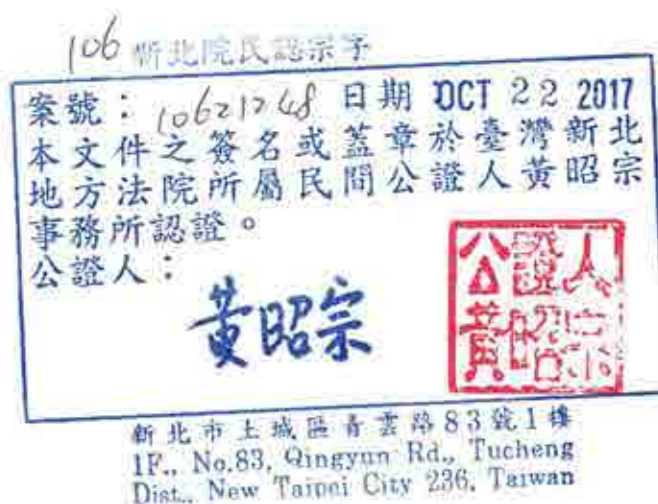 106 新北院民認宗字
案號：10621248 日期 OCT 22 2017
本文件之簽名或蓋章於臺灣新北
地方法院所屬民間公證人黃昭宗
事務所認證。
公證人：
黃昭宗
公證人黃昭宗
新北市土城區青雲路83號1樓
1F., No.83, Qingyun Rd., Tucheng
Dist., New Taipei City 236, Taiwan